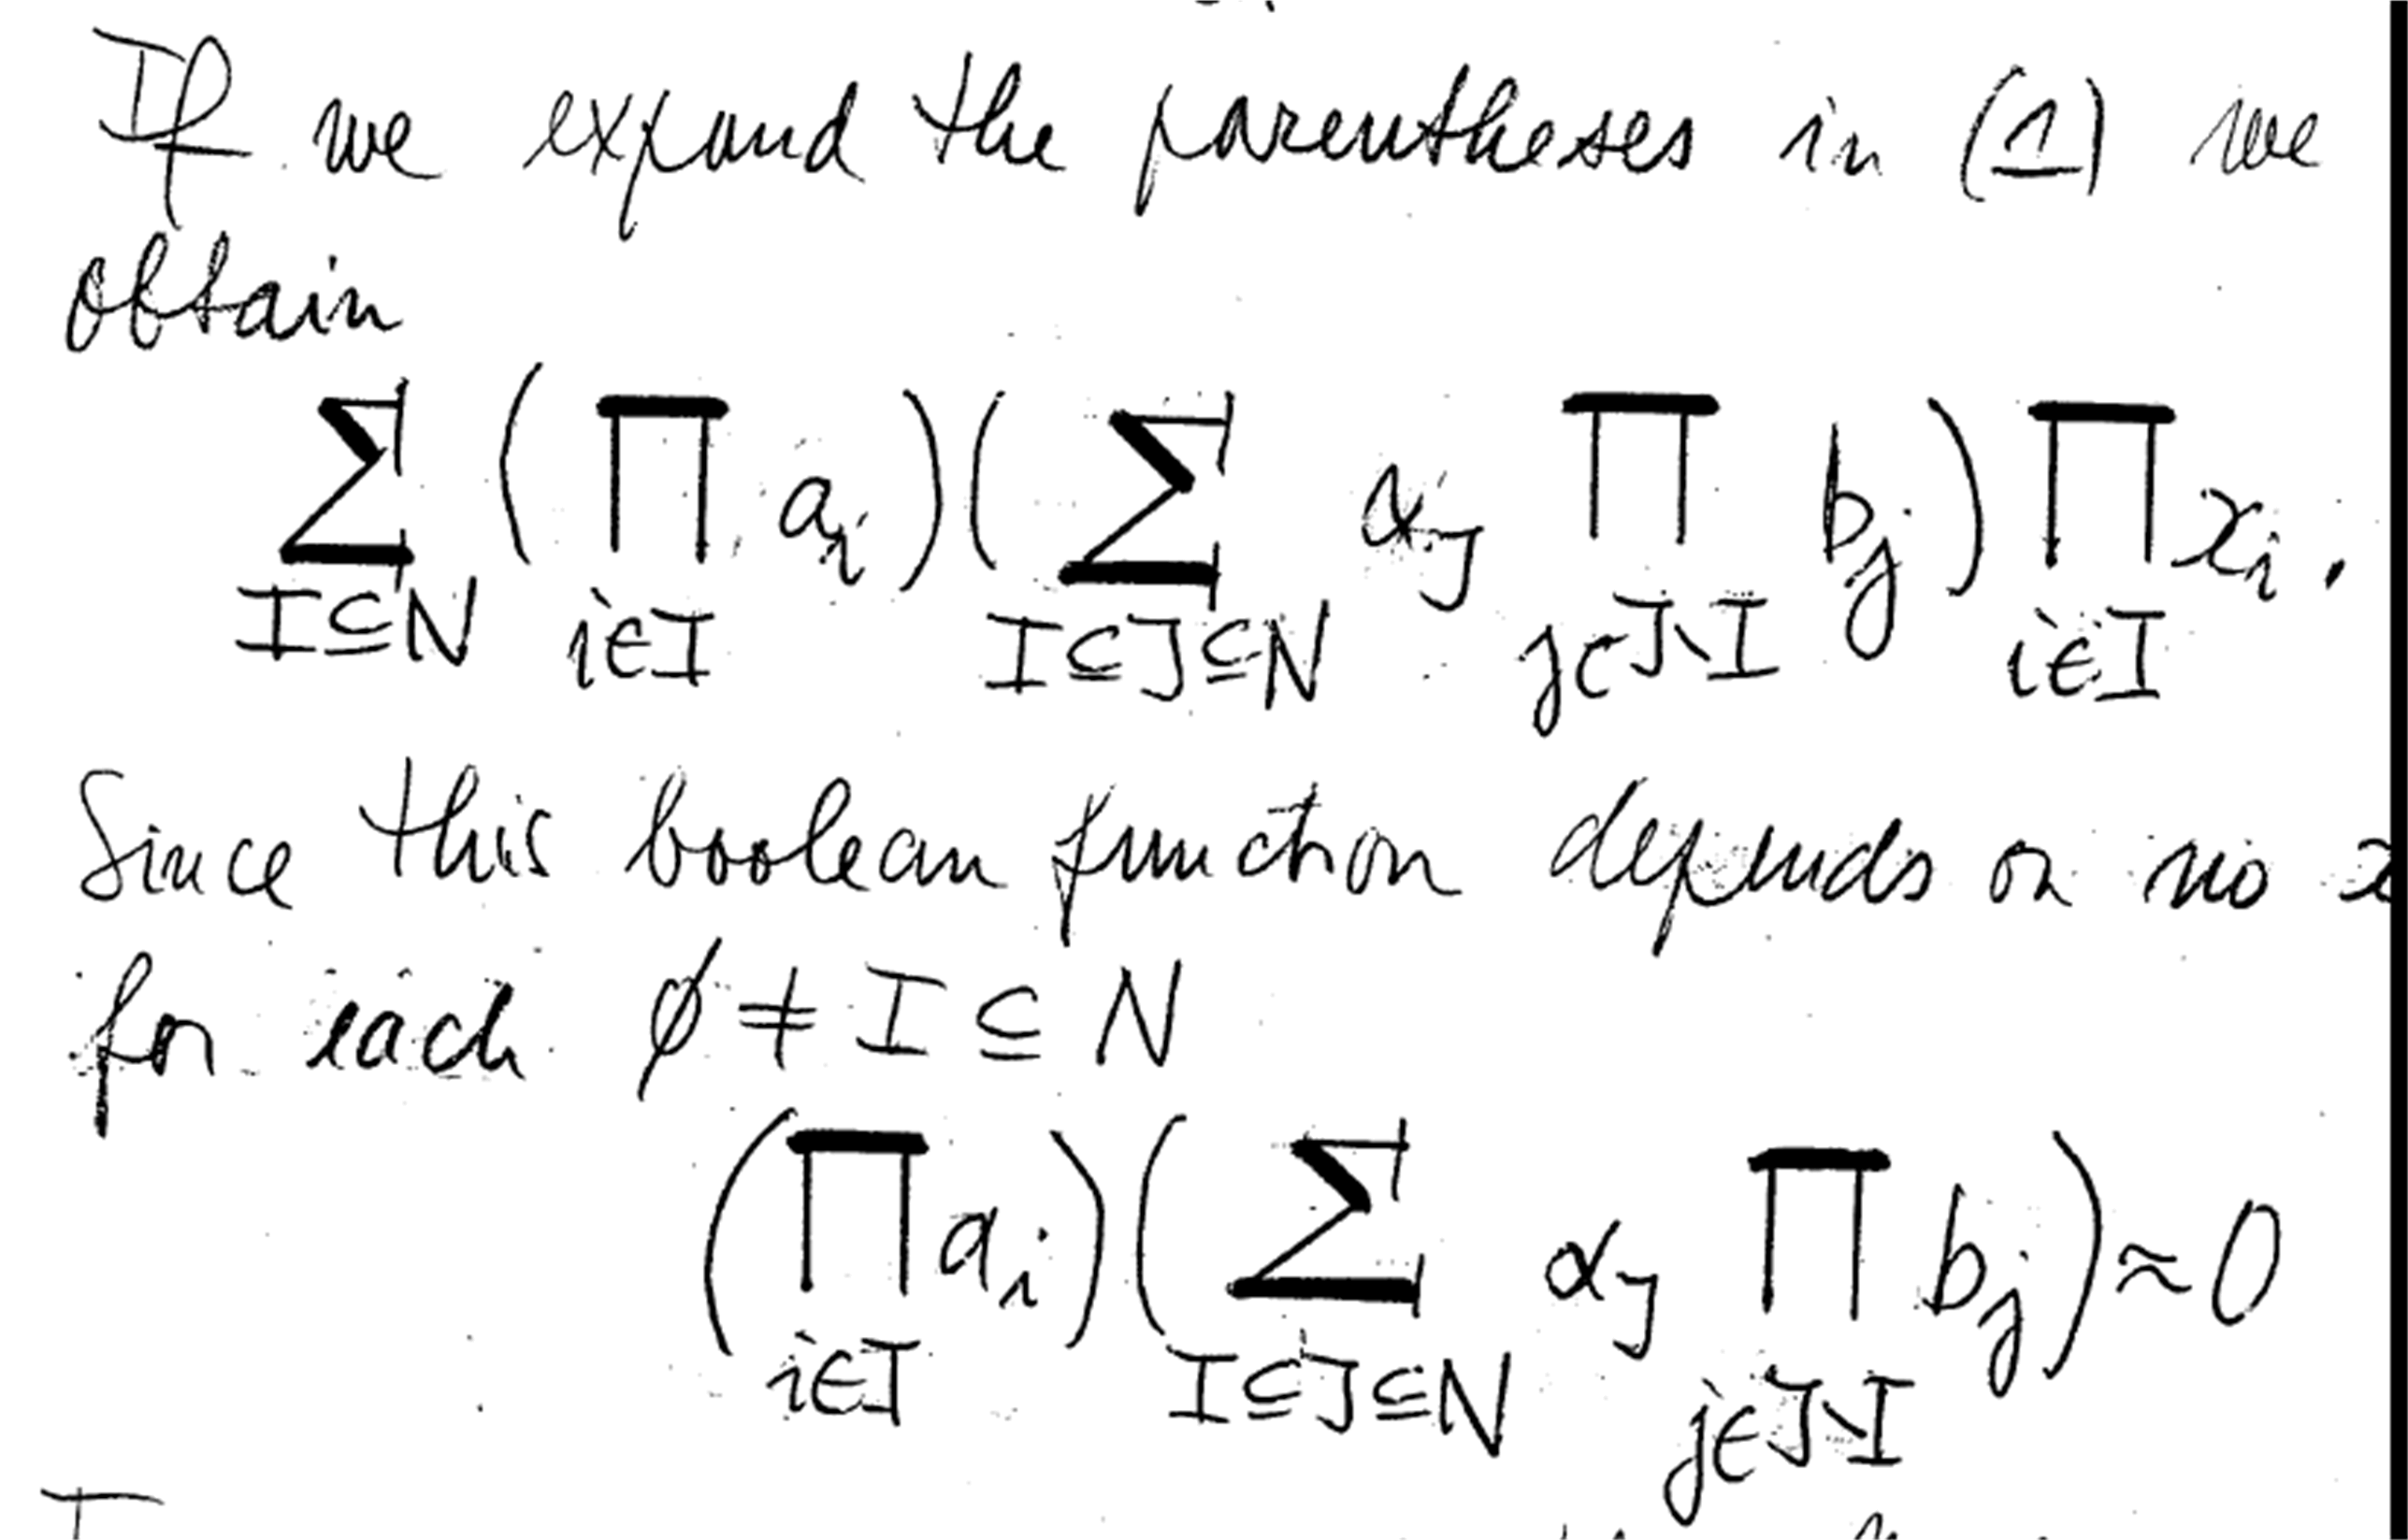 If we expand the parentheses in (1) we
obtain
∑_{I⊆N} (∏_{i∈I} a_i)(∑_{I⊆J⊆N} α_J ∏_{j∈J∖I} b_j) ∏_{i∈I} x_i.
Since this boolean function depends on no x
for each ∅ ≠ I ⊆ N
(∏_{i∈I} a_i)(∑_{I⊆J⊆N} α_J ∏_{j∈J∖I} b_j) ≈ 0